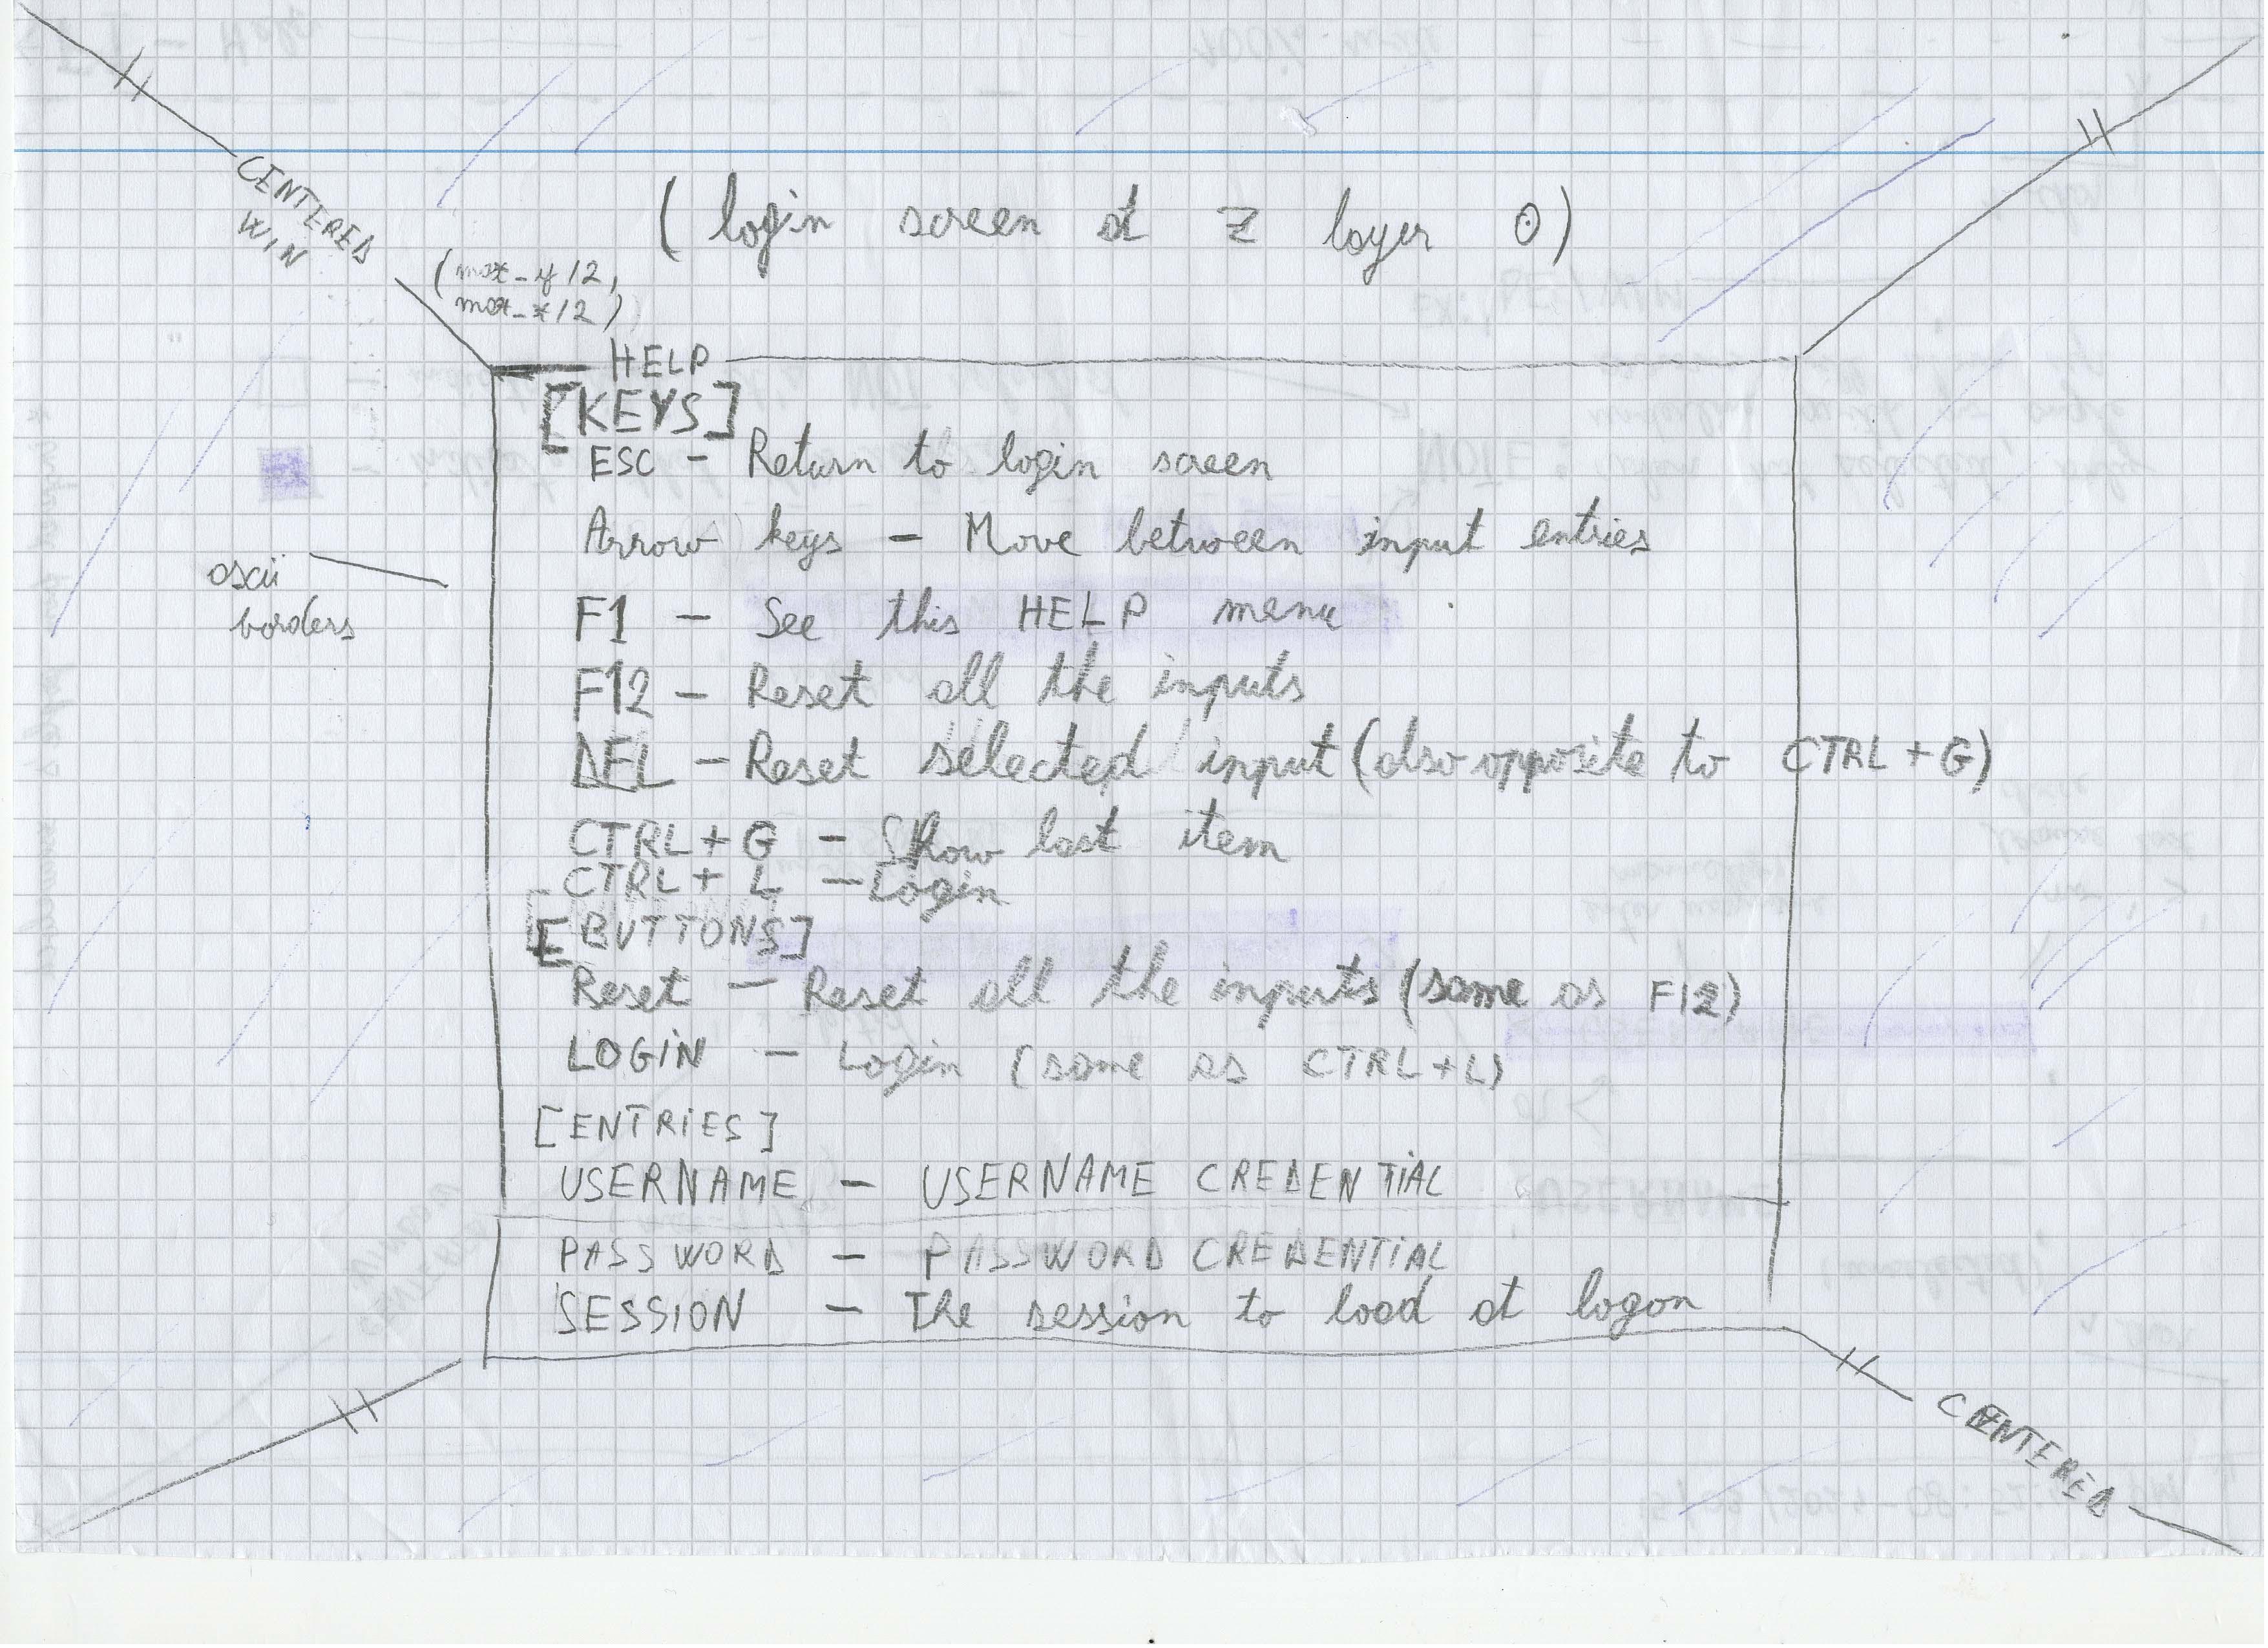 (login screen at z layer 0)
CENTERED
WIN
(max_y/2,
max_x/2)
HELP
[KEYS]
ESC - Return to login screen
Arrow keys - Move between input entries
ascii
borders
F1 - See this HELP menu
F12 - Reset all the inputs
DEL - Reset selected input (also opposite to CTRL+G)
CTRL+G - Show last item
CTRL+L - Login
[BUTTONS]
Reset - Reset all the inputs (same as F12)
LOGIN - Login (same as CTRL+L)
[ENTRIES]
USERNAME - USERNAME CREDENTIAL
PASSWORD - PASSWORD CREDENTIAL
SESSION - The session to load at logon
CENTERED